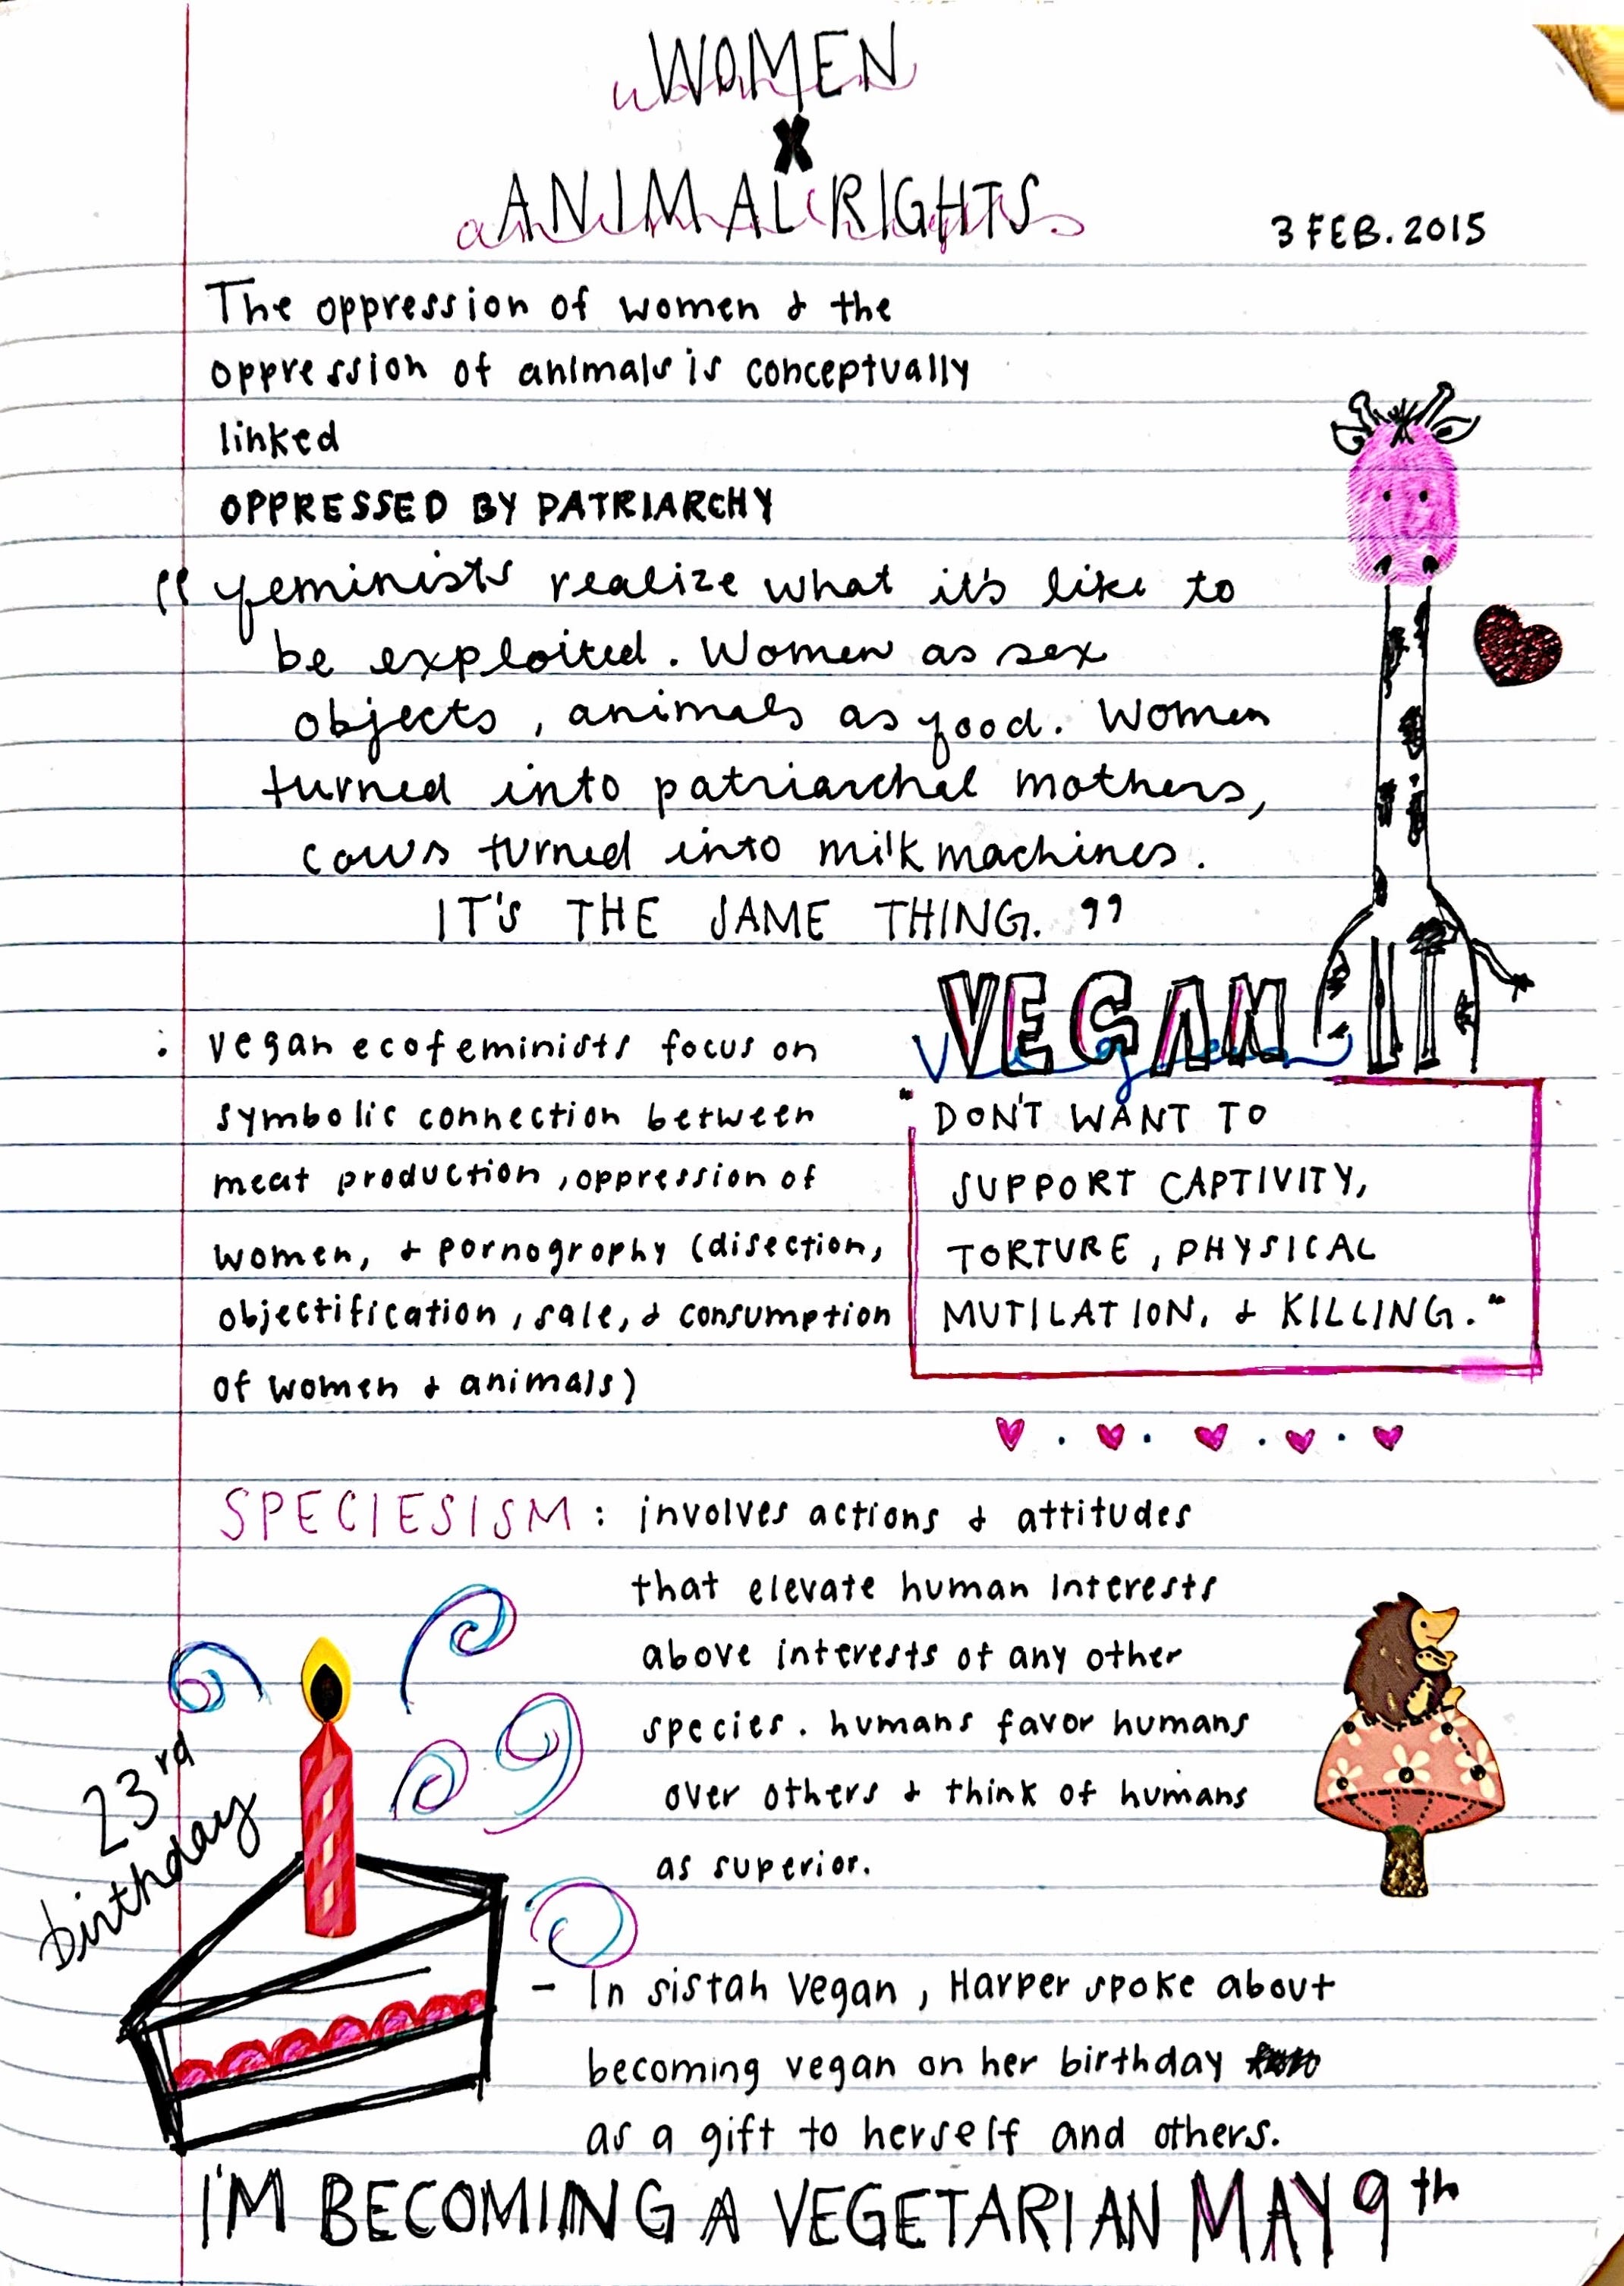 WOMEN
X
ANIMAL RIGHTS
3 FEB. 2015
The oppression of women & the
oppression of animals is conceptually
linked
OPPRESSED BY PATRIARCHY
"feminists realize what it's like to
be exploited. Women as sex
objects, animals as food. Women
turned into patriarchal mothers,
cows turned into milk machines.
IT'S THE SAME THING."
VEGAN
: vegan ecofeminists focus on
symbolic connection between
meat production, oppression of
women, & pornography (disection,
objectification, sale, & consumption
of women & animals)
"DON'T WANT TO
SUPPORT CAPTIVITY,
TORTURE, PHYSICAL
MUTILATION, & KILLING."
SPECIESISM: involves actions & attitudes
that elevate human interests
above interests of any other
species. humans favor humans
over others & think of humans
as superior.
23rd
birthday
- In sistah vegan, Harper spoke about
becoming vegan on her birthday
as a gift to herself and others.
I'M BECOMING A VEGETARIAN MAY 9th